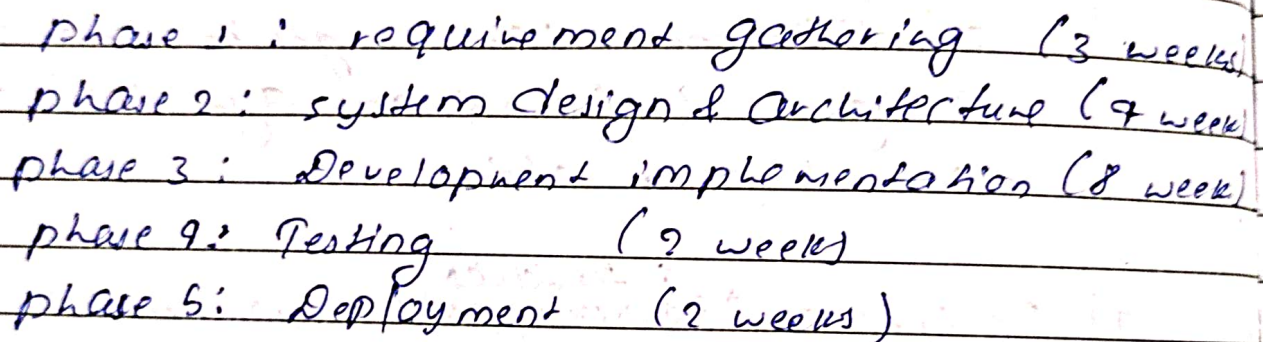 phase 1 : requirement gathering (3 weeks)
phase 2 : system design & architecture (4 week)
phase 3 : Development implementation (8 week)
phase 4 : Testing (2 weeks)
phase 5 : Deployment (2 weeks)